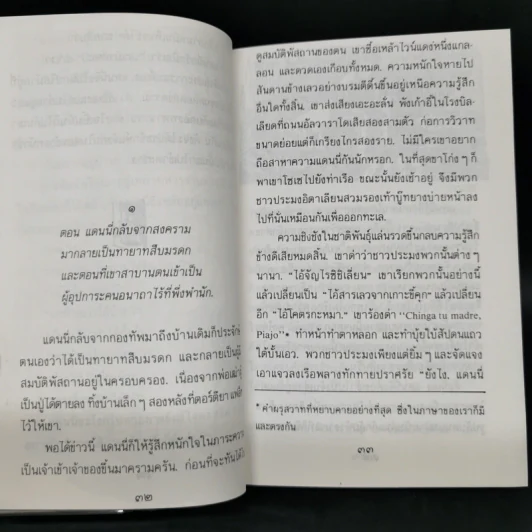 ๑
ตอน แดนนี่กลับจากสงคราม
มากลายเป็นทายาทสืบมรดก
และตอนที่เขาสาบานตนเข้าเป็น
ผู้อุปการะคนอนาถาไร้ที่พึ่งพำนัก.
แดนนี่กลับจากกองทัพมาถึงบ้านเดิมก็ประจักษ์
ตนเองว่าได้เป็นทายาทสืบมรดก และกลายเป็นผู้มี
สมบัติพัสถานอยู่ในครอบครอง. เนื่องจากพ่อเฒ่าผู้
เป็นปู่ได้ตายลง ทิ้งบ้านเล็ก ๆ สองหลังที่ตอร์ติยา
ไว้ให้เขา.
พอได้ข่าวนี้ แดนนี่ก็ให้รู้สึกหนักใจในภาระความ
เป็นเจ้าเข้าเจ้าของขึ้นมาครามครัน. ก่อนที่จะทันได้ไป
๓๒
ดูสมบัติพัสถานของตน เขาซื้อเหล้าไวน์แดงหนึ่งแกล-
ลอน และดวดเองเกือบทั้งหมด. ความหนักใจหายไป
สันดานข้างเลวอย่างบรมดีดดิ้นขึ้นอยู่เหนือความรู้สึก
อื่นใดทั้งสิ้น. เขาส่งเสียงเอะอะลั่น พังเก้าอี้ในโรงบิล-
เลียดที่ถนนอัลวาราโดเสียสองสามตัว ก่อการวิวาท
ขนาดย่อยแต่ก็เกรียงไกรสองราย. ไม่มีใครเขาอยาก
ถือสาหาความแดนนี่กันนักหรอก. ในที่สุดขาโก่ง ๆ ก็
พาเขาโซเซไปยังท่าเรือ ขณะนั้นยังเช้าอยู่ จึงมีพวก
ชาวประมงอิตาเลียนสวมรองเท้าบู๊ทยางบ่ายหน้าลง
ไปที่นั่นเหมือนกันเพื่อออกทะเล.
ความชิงชังในชาติพันธุ์แล่นรวดขึ้นกลบความรู้สึก
ข้างดีเสียหมดสิ้น. เขาด่าว่าชาวประมงพวกนั้นต่าง ๆ
นานา. "ไอ้จัญไรซิซิเลี่ยน" เขาเรียกพวกนั้นอย่างนี้
แล้วเปลี่ยนเป็น "ไอ้สารเลวจากเกาะขี้คุก" แล้วเปลี่ยน
อีก "ไอ้โคตรกะหมา." เขาร้องด่า "Chinga tu madre,
Piajo"* ทำหน้าทำตาหลอก และทำบุ้ยใบ้สัปดนแถว
ใต้บั้นเอว. พวกชาวประมงเพียงแต่ยิ้ม ๆ และจัดแจง
เอาแจวลงเรือพลางทักทายปราศรัย "ยังไง, แดนนี่
* คำผรุสวาทที่หยาบคายอย่างที่สุด ซึ่งในภาษาของเราก็มี
และตรงกัน.
๓๓